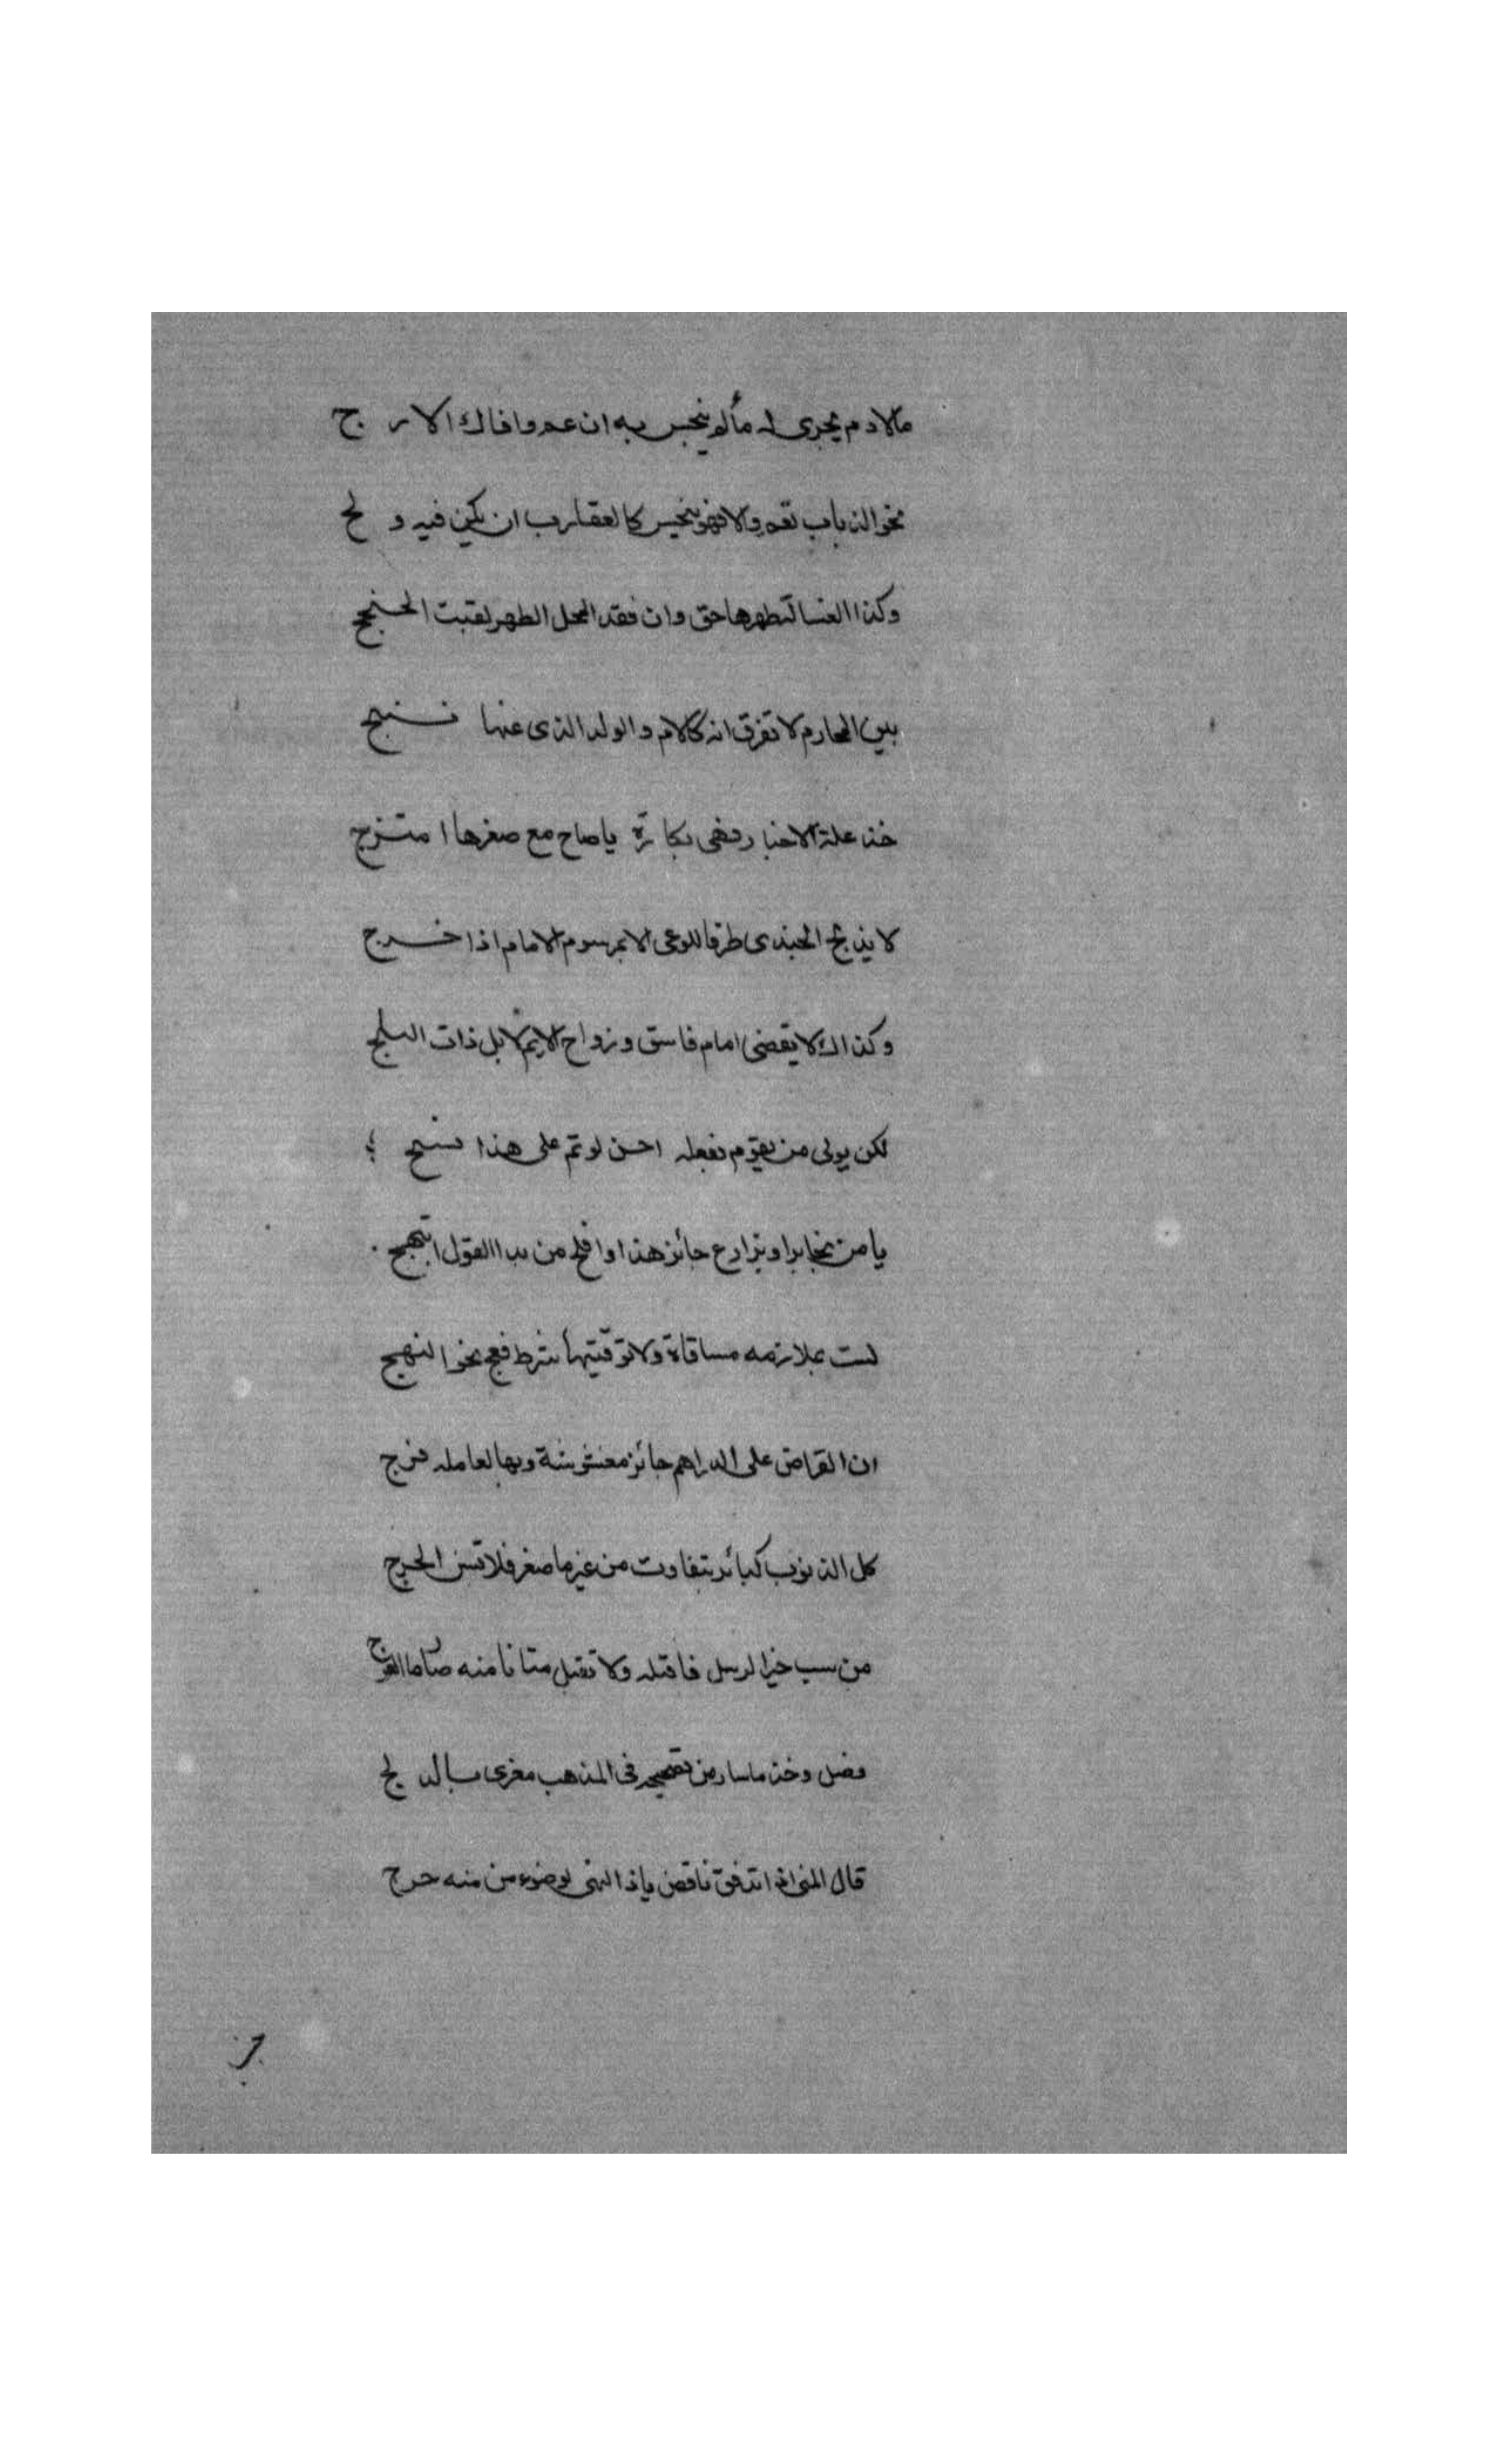 مالادم يجرى له مألم ينجس به ان عم وافاك الارج
نحو الذباب نعم والا فهو ينجس كالعقارب ان يكن فيه ولج
وكذا الغسالة طهرها حق وان فقد المحل الطهر
بين المحارم لا تفرق انه كالام والولد الذى عنها نتج
خذ علة الاخبار فهى بكارة ياصاح مع صغرها امتزج
لا يذبح الجندى طرقا للوعى الا بمرسوم الامام اذا خرج
وكذاك لا يقضى امام فاسق وزواج الايم لا بل ذات البلج
لكن يولى من يقوم بفعله احسن لو تم على هذا نسج
يا من يخابر او يزارع جائز هذا وافلح من بدا القول ابتهج
لست بملازمه مساقاة ولا توقيتها شرط فعج نحو النهج
ان القراض على الدراهم جائز مغشوشة وبها لعامله فرج
كل الذنوب كبائر بتفاوت من غير ما صغر فلا تنس الحرج
من سب خير الرسل فاقتله ولا تقبل متابا منه
فصل وخذ ماسار من تصحيحه فى المذهب مغرى بالدلج
قال المنى اذا تدفق ناقض ياذا النهى لوضوء من منه خرج